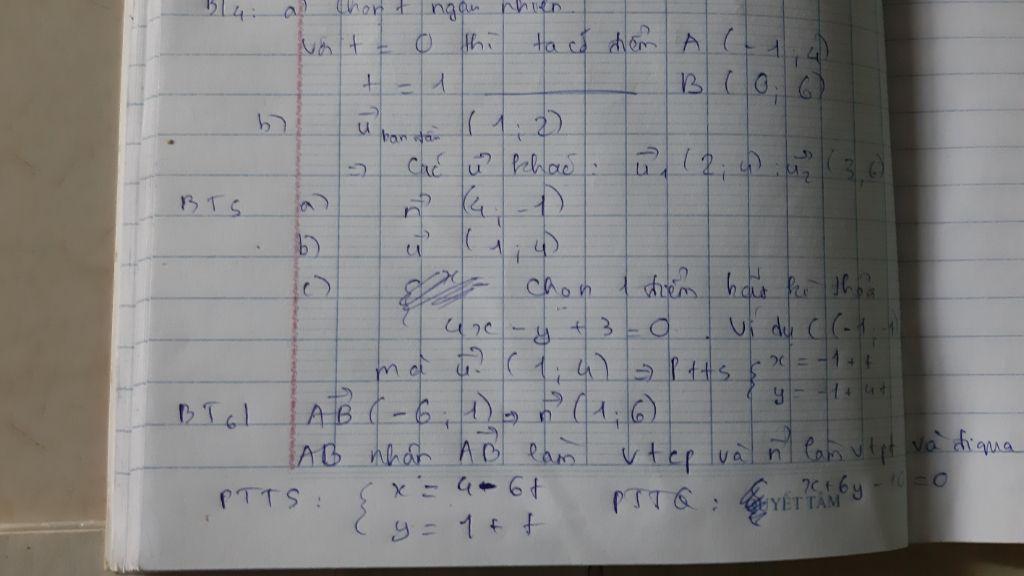 BT4: a) Chọn t ngẫu nhiên.
với t = 0 thì ta có điểm A (-1; 4)
t = 1 ——— B (0; 6)
b) u⃗ ban đầu (1; 2)
⇒ Các u⃗ khác: u⃗₁ (2; 4); u⃗₂ (3, 6)
BT5 a) n⃗ (4; -1)
b) u⃗ (1; 4)
c) chọn 1 điểm bất kì thỏa
4x - y + 3 = 0. Ví dụ C(-1; -1)
mà u⃗ (1; 4) ⇒ PTTS { x = -1 + t
y = -1 + 4t
BT6| AB⃗ (-6; 1) ⇒ n⃗ (1; 6)
AB nhận AB⃗ làm vtcp và n⃗ làm vtpt và đi qua
PTTS: { x = 4 - 6t PTTQ: x + 6y - 10 = 0
YẾT TÂM
y = 1 + t